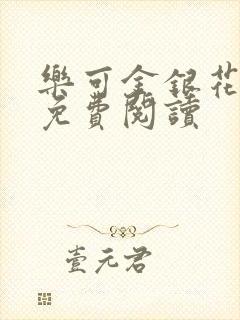 樂可金銀花
免費閱讀
壹元君